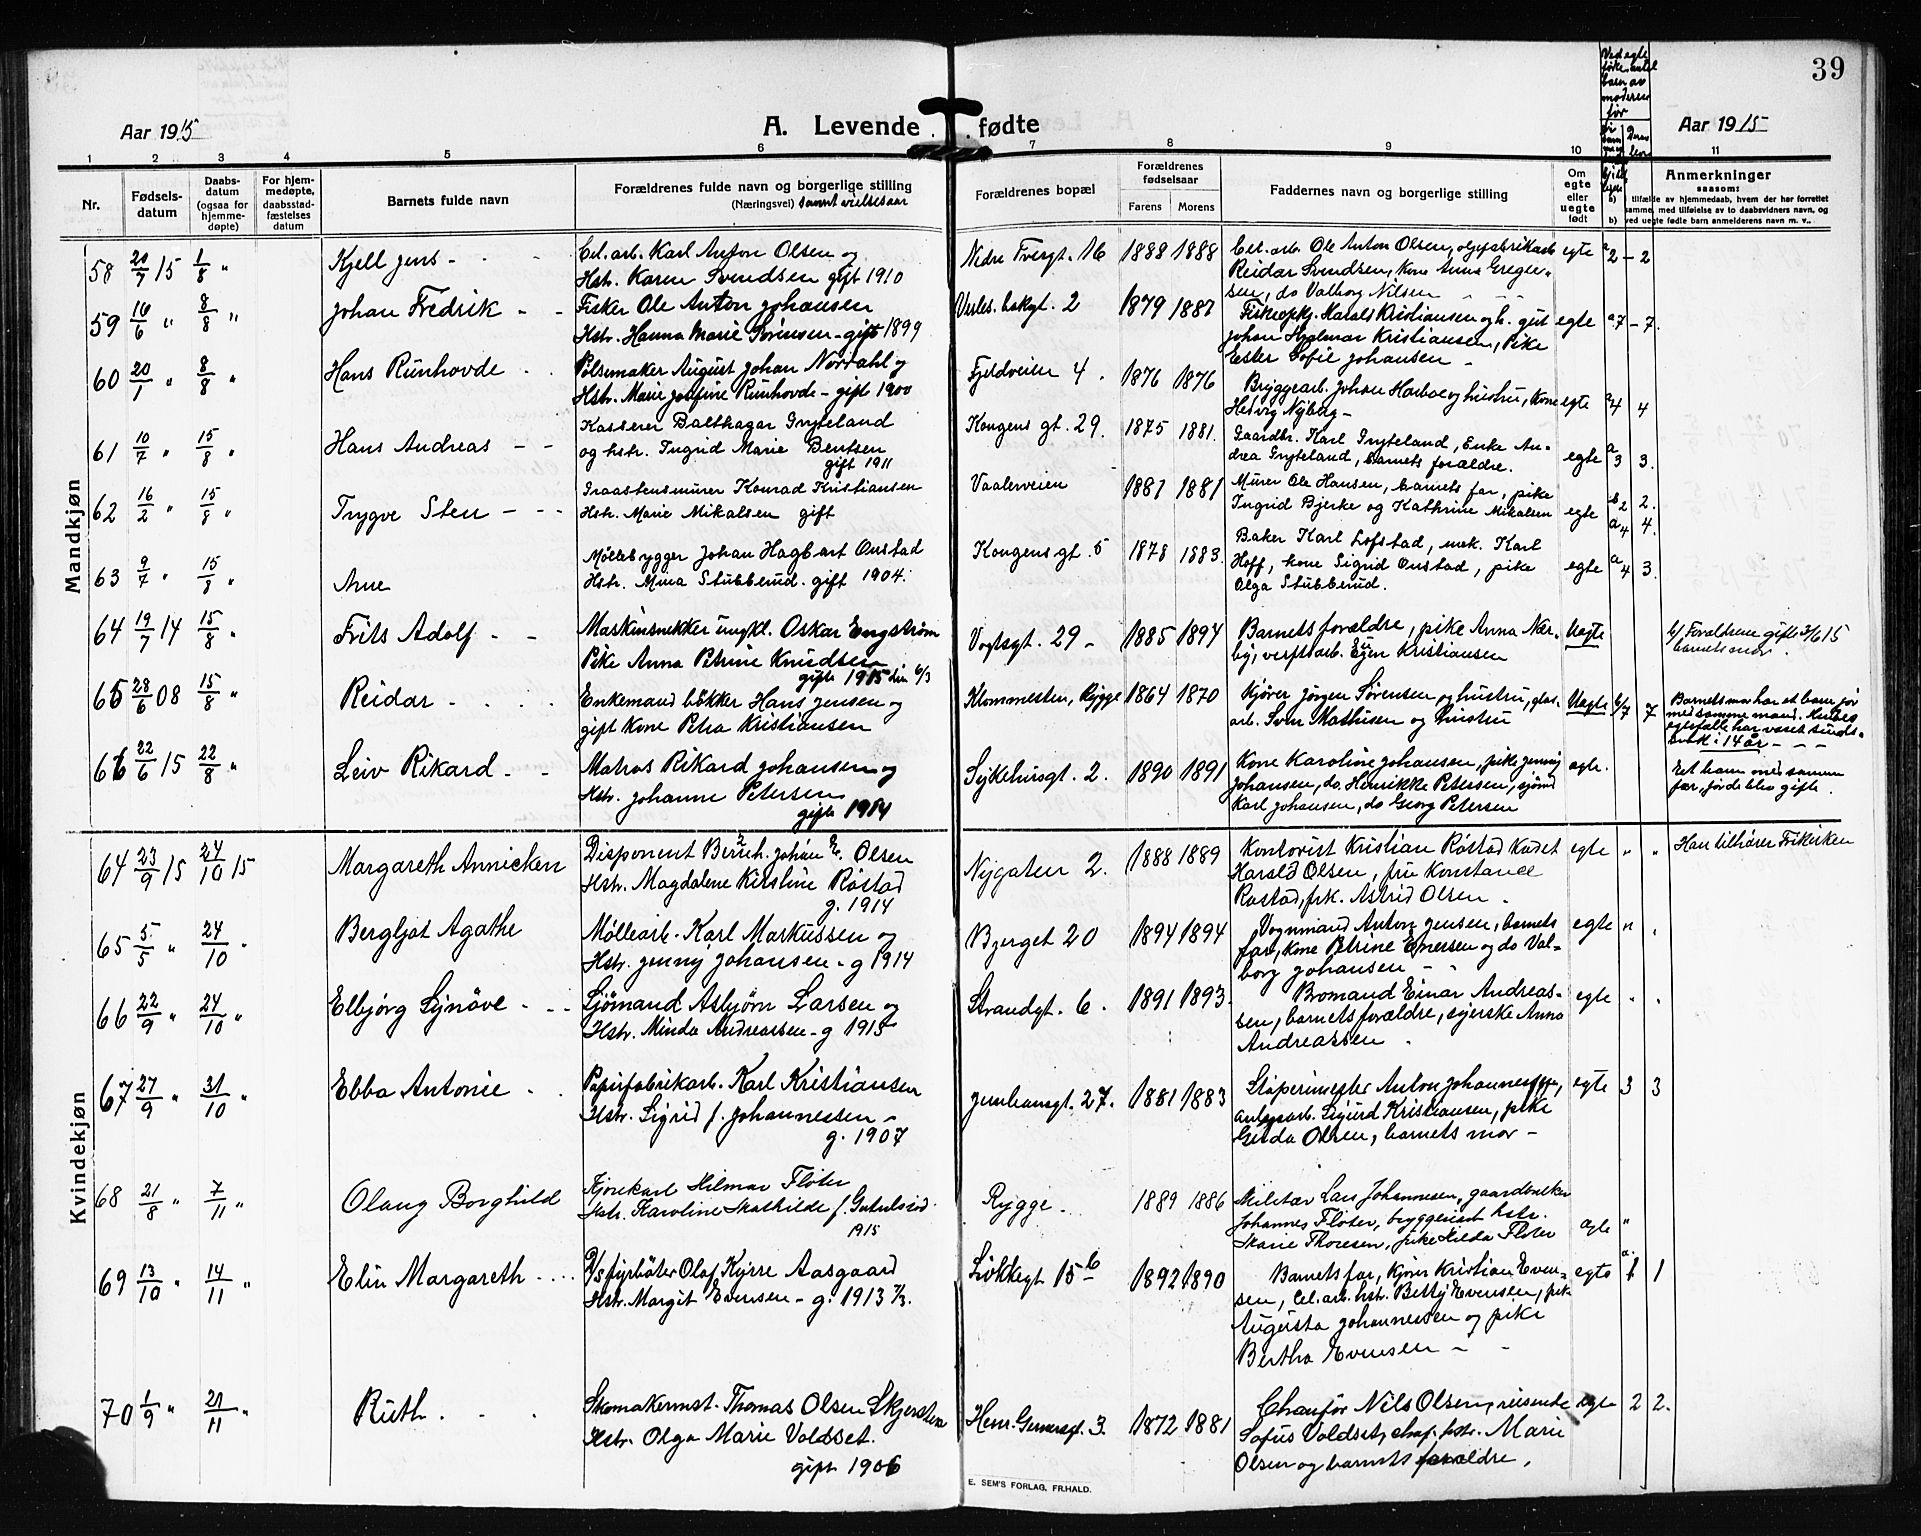 39
Aar 1915
A. Levende fødte
Aar 1915
1 2 3 4 5 6 7 8 9 10 11
Nr.
Fødsels-
datum
Daabs-
datum
(ogsaa for
hjemme-
døpte)
For hjem-
medøpte,
daabsstad-
fæstelses
datum
Barnets fulde navn
Forældrenes fulde navn og borgerlige stilling
(Næringsvei) samt vielsesaar
Forældrenes bopæl
Forældrenes
fødselsaar
Farens Morens
Faddernes navn og borgerlige stilling
Om
egte
eller
uegte
født
Anmerkninger
saasom:
a) tilfælde av hjemmedaab, hvem der har forrettet
samme, med tilføielse av to daabsvidners navn, og
b) ved uegte fødte barn anmelderens navn m. v..
Mandkjøn
58 20/7 15 1/8 "
Kjell Jens
Cel. arb. Karl Anton Olsen og
Hstr. Karen Svendsen gift 1910
Nedre Tvergt. 16
1888 1888
Cel. arb. Ole Anton Olsen, oljefabrikarb.
Reidar Svendsen, Kone Anna Gregersen, do Valborg Nilsen
egte a 2 - 2
59 16/6 " 8/8 "
Johan Fredrik
Fisker Ole Anton Johansen
Hstr. Hanna Marie Sørensen - gift 1899
Verles. bakgt. 2
1879 1881
Fiskeopkj. Harald Kristiansen og h. gut
Johan Hjalmar Kristiansen, Pike
Ester Sofie Johansen
egte a 7 - 7.
60 20/1 " 8/8 "
Hans Runhovde
Pølsemaker August Johan Nordahl og
Hstr. Marie Josefine Runhovde - gift 1900
Fjeldveien 4.
1876 1876
Bryggearb. Johan Harboe og hustru, Kone
Hedvig Nyberg -
egte a 4 4
61 10/7 " 15/8 "
Hans Andreas
Kasserer Balthazar Gryteland
og hstr. Ingrid Marie Bentsen
gift 1911
Kongens gt. 29.
1875 1881.
Gaardbr. Karl Gryteland, Enke An-
drea Gryteland, barnets forældre.
egte a 3 3.
62 16/2 " 15/8 "
Trygve Sten
Graastensmurer Konrad Kristiansen
Hstr. Marie Mikalsen gift
Vaalerveien
1881 1881
Murer Ole Hansen, barnets far, pike
Ingrid Bjerke og Kathrine Mikalsen
egte b 2 2.
a 4 4.
63 9/7 " 15/8 "
Arne
Møllebygger Johan Hagbart Onstad
Hstr. Mina Stubberud. gift 1904.
Kongensgt. 5
1878 1883.
Baker Karl Lofstad, mek. Karl
Hoff, kone Sigrid Onstad, pike
Olga Stubberud.
egte a 4 3.
64 19/7 14 15/8 "
Frits Adolf
Maskinsnekker ungkl. Oskar Engstrøm
Pike Anna Petrine Knudsen
gifte 1915 den 6/3
Vogtsgt. 29 -
1885 1894
Barnets forældre, pike Anna Nær-
by, verftsarb. Egen Kristiansen
Uegte
b/ Forældrene gifte 3/6 15
barnets mor.
65 28/6 08 15/8 "
Reidar
Enkemand bøkker Hans Jensen og
gift Kone Petra Kristiansen
Klommesten, Rygge
1864 1870
Kjører Jørgen Sørensen og hustru, glas-
arb. Sven Mathisen og hustru
Uegte b/7 7
Barnets mor har et barn før
med samme mand. Hendes
egtefælle har været sinds-
svak i 14 år
66 22/6 15 22/8 "
Leiv Rikard
Matros Rikard Johansen og
Hstr. Johanne Petersen
gifte 1914
Sykehusgt. 2.
1890 1891
Kone Karoline Johansen, pike Jenny
Johansen, do. Henrikke Petersen, sjømd
Karl Johansen, do Georg Petersen
egte.
Et barn med samme
far, før de blev gifte.
Kvindekjøn
64 23/9 15 24/10 15
Margareth Annicken
Disponent Bernh. Johan E. Olsen
Hstr. Magdalene Kirstine Røstad
g. 1914
Nygaten 2.
1888 1889
Kontorist Kristian Røstad Kadet
Harald Olsen, fru Konstance
Røstad, frk. Astrid Olsen.
egte " "
Han tilhører Frikirken
65 5/5 " 24/10 "
Bergljot Agathe
Møllearb. Karl Markussen og
Hstr. Jenny Johansen - g 1914
Bjerget 20
1894 1894
Vognmand Anton Jensen, barnets
far, kone Petrine Enersen og do Val-
borg Johansen
egte " "
66 22/9 " 24/10 "
Elbjørg Synøve
Sjømand Asbjørn Larsen og
Hstr. Minda Andreassen - g 1915
Strandgt. 6.
1891 1893.
Bromand Einar Andreas-
sen, barnets forældre, syerske Anna
Andreassen.
egte " "
67 27/9 " 31/10 "
Ebba Antonie
Papirfabrikarb. Karl Kristiansen
Hstr. Sigrid f. Johannessen -
g. 1907
Jernbanegt. 27.
1881 1883
Støperimester Anton Johannessen,
anlegsarb. Sigurd Kristiansen, pike
Gerda Olsen, barnets mor -
egte 3 3
68 21/8 " 7/11 "
Olaug Borghild
Kjørekarl Hilmar Fløter
Hstr. Karoline Mathilde f. Gutulsrød.
1915
Rygge.
1889 1886
Militær Lars Johannesen, gaardbruker
Johannes Fløter, bryggeriarb hstr.
Marie Thoresen, pike Hilda Fløter
egte "
69 13/10 " 14/11 "
Elin Margareth
D/S fyrbøter Olaf Kyrre Aasgaard
Hstr. Margit Evensen - g. 1913 7/3.
Løkkegt 15 b
1892 1890
Barnets far, Kjører Kristian Even-
sen, Cel. arb. hstr. Betty Evensen, pik
Augusta Johannessen og pike
Bertha Evensen -
egte a. 1 1
70 1/9 " 21/11 "
Ruth
Skomakermst. Thomas Olsen Skjersten
Hstr. Olga Marie Voldset.
gift 1906
Henr. Gernersgt. 3.
1872 1881
Chauffør Nils Olsen, reisende
Sofus Voldset, chaf. hstr. Marie
Olsen og barnets forældre.
egte 2 2.
E. SEM'S FORLAG, FR.HALD.